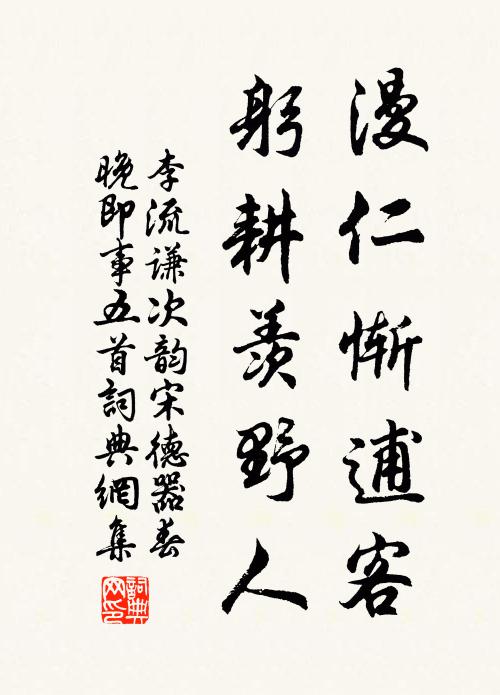 漫仁惭逋客
躬耕羡野人
李流谦次韵宋德器春
晚即事五首詞典網集
詞典网印